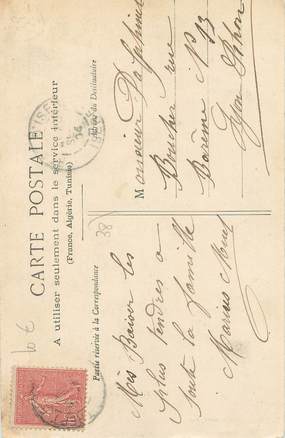 CARTE POSTALE
A utiliser seulement dans le service intérieur
(France, Algérie, Tunisie)
Partie réservée à la Correspondance
Adresse du Destinataire
Mes Baiser les
plus tendres a
toute la famille
Marius
38
10 €
Monsieur
Boucher rue
Barème N° 13
Lyon Rhône